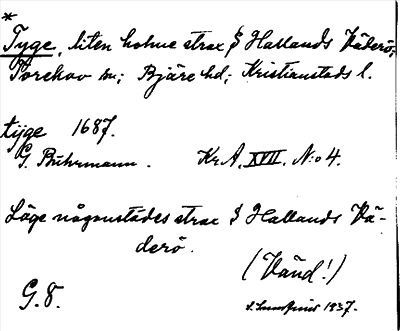 *
Tyge, liten holme strax S Hallands Väderö;
Torekov sn; Bjäre hd; Kristianstads l.
tyge 1687.
G. Buhrmann. Kr.A. XVII. N:o 4.
Läge någonstädes strax S Hallands Vä-
derö.
(Vänd!)
G. 8.
1937.